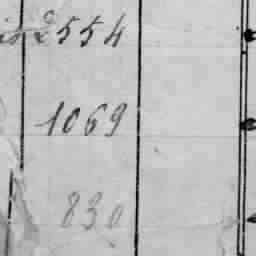 2554
1069
830